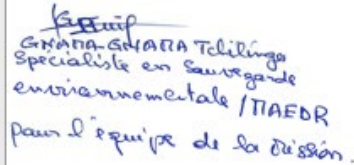 GNAMA-GNAMA Tchilinga
Spécialiste en Sauvegarde
environnementale / MAEDR
pour l'équipe de la mission.